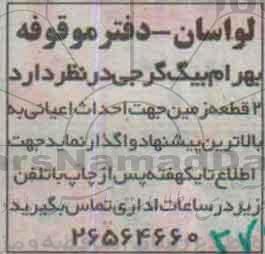 لواسان-دفتر موقوفه
بهرام بیگ گرجی در نظر دارد
۲ قطعه زمین جهت احداث اعیانی به
بالاترین پیشنهاد واگذار نماید جهت
اطلاع تا یکهفته پس از چاپ با تلفن
زیر در ساعات اداری تماس بگیرید
۲۶۵۶۴۶۶۰
۲۷